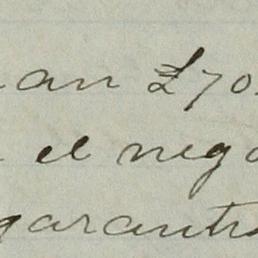 an £70
el nego
garanti